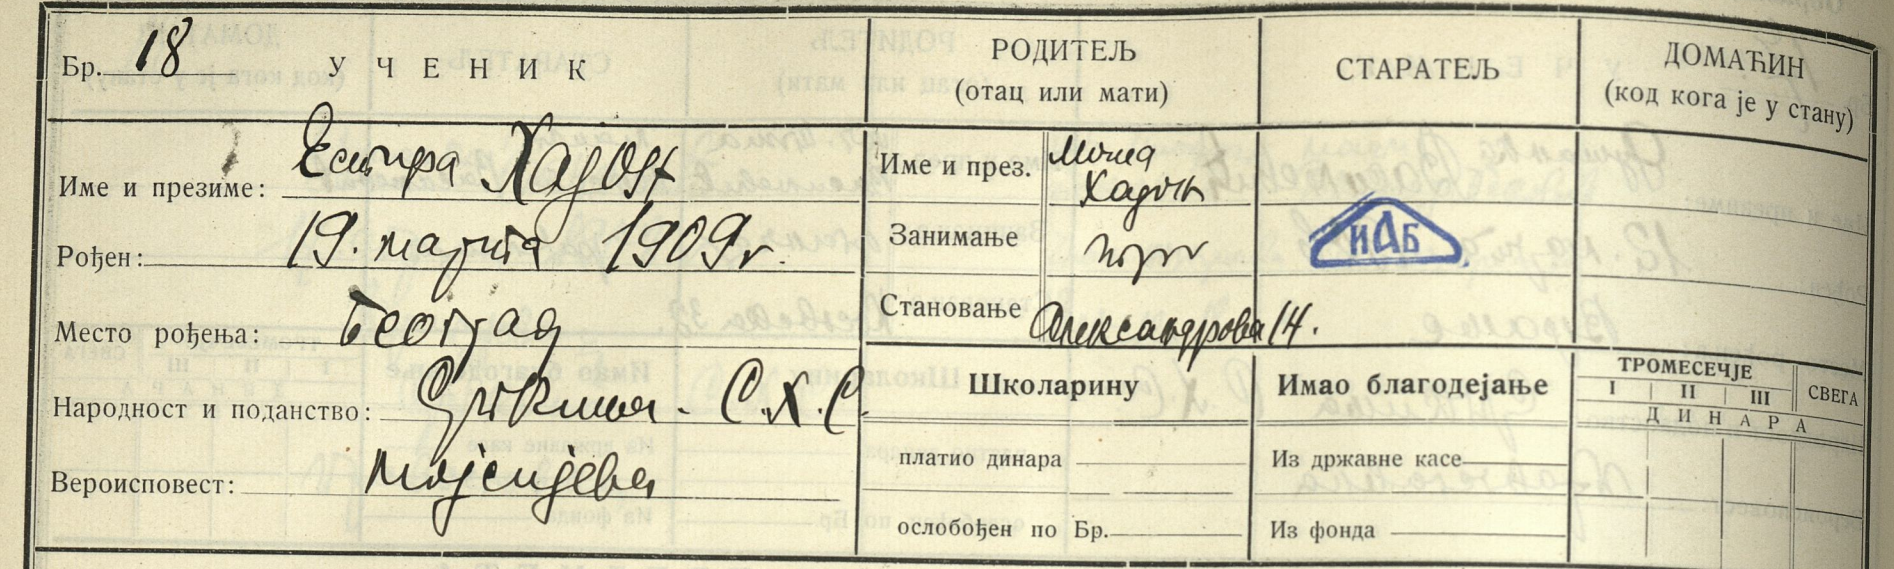 Бр. 18
УЧЕНИК
Име и презиме: Естира Хадон
Рођен: 19. марта 1909 г.
Место рођења: Београд
Народност и поданство: Српкиња - С.Х.С.
Вероисповест: мојсијева
РОДИТЕЉ
(отац или мати)
Име и през.
Хадон
Занимање
Становање Александрова 14.
СТАРАТЕЉ
ИАБ
ДОМАЋИН
(код кога је у стану)
Школарину
платио динара
ослобођен по Бр.
Имао благодејање
Из државне касе
Из фонда
ТРОМЕСЕЧЈЕ
I II III СВЕГА
ДИНАРА